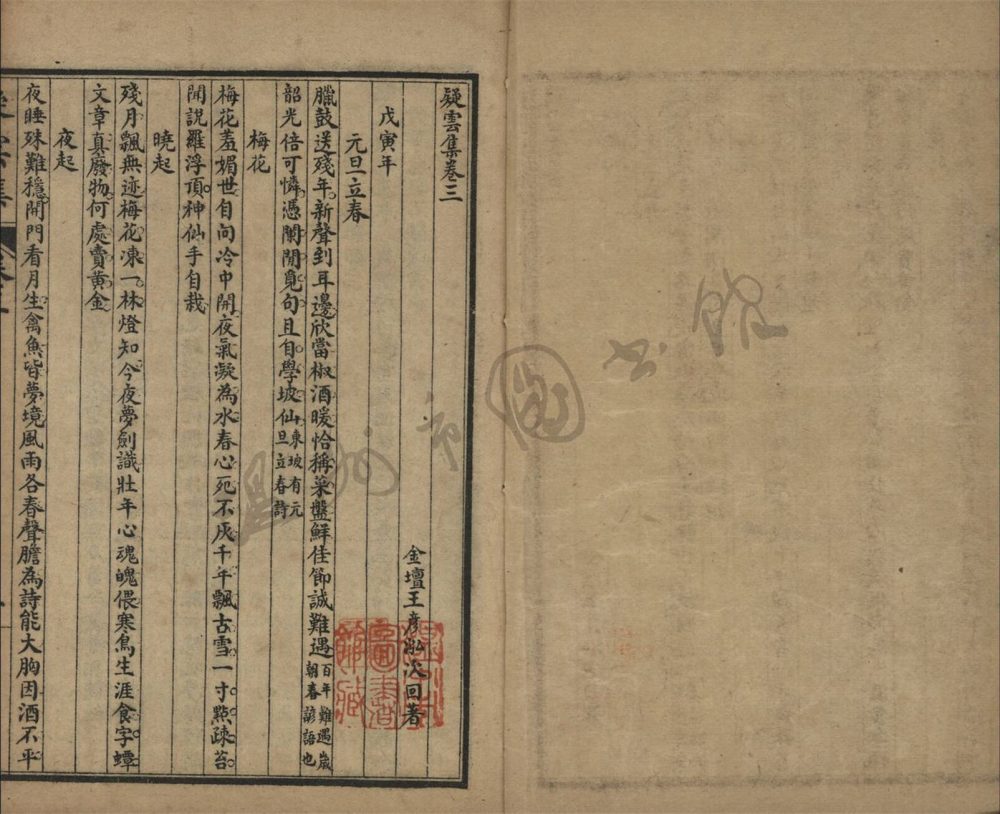 疑雲集卷三
金壇王彦泓次回著
戊寅年
元旦立春
臘鼓送殘年新聲到耳邊欣當椒酒暖恰稱菜盤鮮佳節誠難遇百年難遇歲朝春諺語也
韶光倍可憐憑闌閒覓句且自學坡仙東坡有元旦立春詩
梅花
梅花羞媚世自向冷中開夜氣凝為水春心死不灰千年飄古雪一寸點疎苔
聞說羅浮頂神仙手自栽
曉起
殘月飄無迹梅花凍一林燈知今夜夢劍識壯年心魂魄偎寒鳥生涯食字蟫
文章真廢物何處賣黃金
夜起
夜睡殊難穩開門看月生禽魚皆夢境風雨各春聲膽為詩能大胸因酒不平
溫州市圖書館
圖書館藏